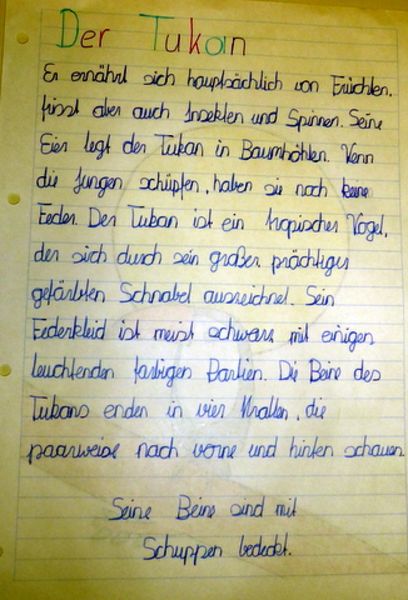 Der Tukan
Er ernährt sich hauptsächlich von Früchten,
frisst aber auch Insekten und Spinnen. Seine
Eier legt der Tukan in Baumhöhlen. Wenn
die Jungen schüpfen, haben sie noch keine
Feder. Der Tukan ist ein tropischer Vogel,
der sich durch sein großer prächtiges
gefärbten Schnabel ausreichnet. Sein
Federkleid ist meist schwarz mit einigen
leuchtenden farbigen Partien. Die Beine des
Tukans enden in vier Krallen, die
paarweise nach vorne und hinten schauen.
Seine Beine sind mit
Schuppen bedeckt.